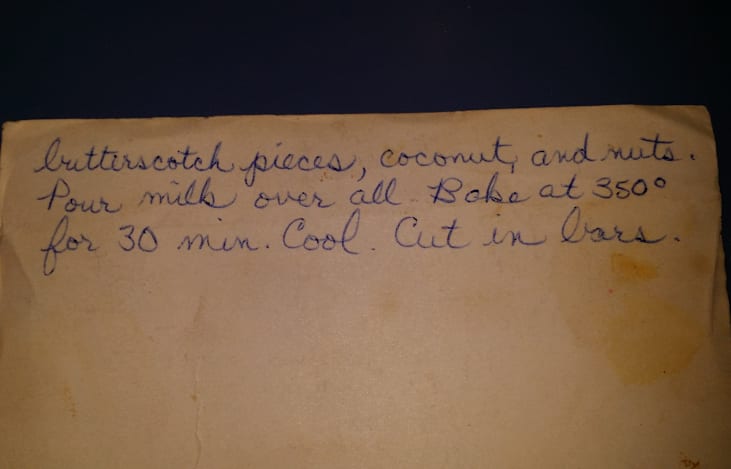 butterscotch pieces, coconut, and nuts.
Pour milk over all. Bake at 350°
for 30 min. Cool. Cut in bars.